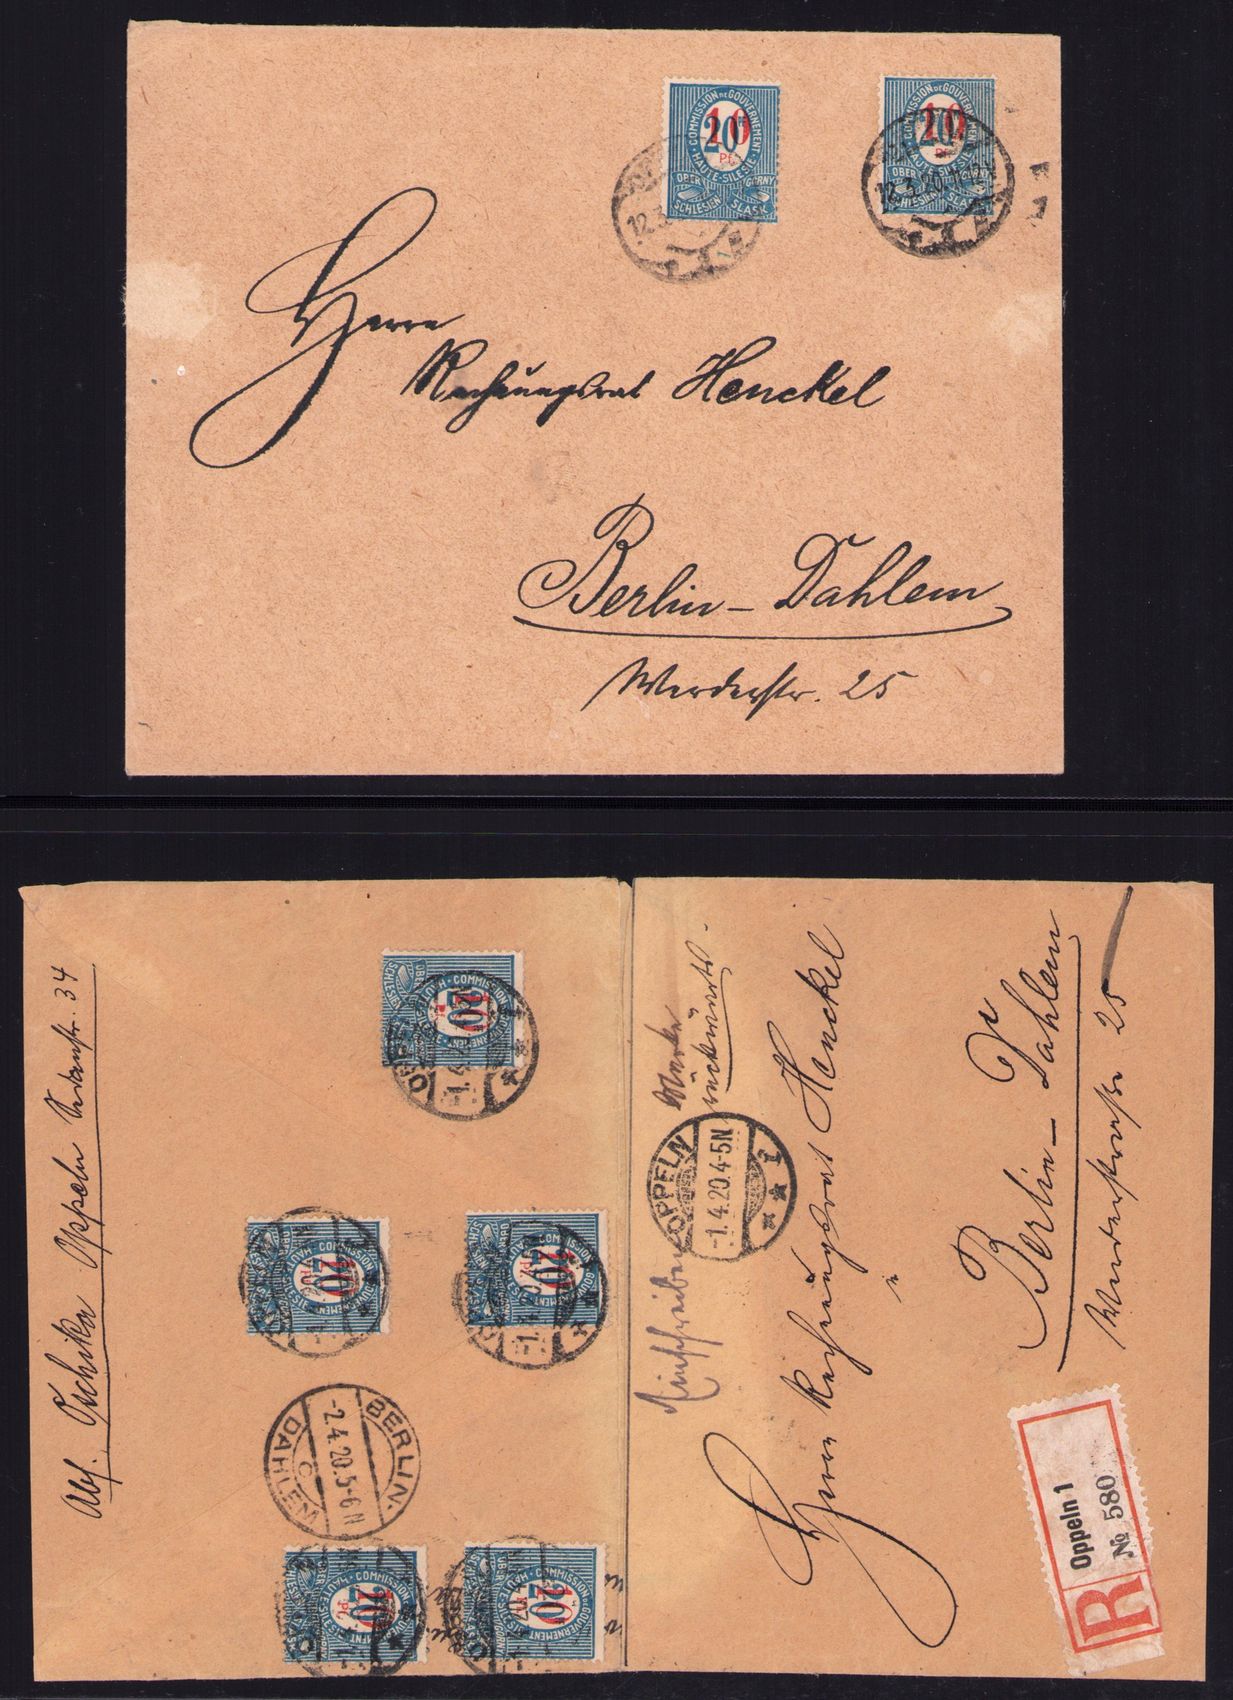 COMMISSION DE GOUVERNEMENT
20
10
Pf.
HAUTE-SILESIE
OBER SCHLESIEN
GÓRNY ŚLĄSK
COMMISSION DE GOUVERNEMENT
20
10
Pf.
HAUTE-SILESIE
OBER SCHLESIEN
GÓRNY ŚLĄSK
12.3.
12.3.20.
Herrn
Rechnungsrat Henckel
Berlin-Dahlem
Werderstr. 25
Abs. Tschika Oppeln 34
COMMISSION DE GOUVERNEMENT
HAUTE-SILESIE
20
10
-1.4.
COMMISSION DE GOUVERNEMENT
HAUTE-SILESIE
20
10
COMMISSION DE GOUVERNEMENT
HAUTE-SILESIE
20
10
BERLIN-DAHLEM
-2.4.20.5-6N
C
COMMISSION DE GOUVERNEMENT
HAUTE-SILESIE
20
10
COMMISSION DE GOUVERNEMENT
20
10
Marke
rückwärts.
Einschreiben
OPPELN
-1.4.20.4-5N
1
Herrn Rechnungsrat Henckel
in
Berlin-Dahlem
Werderstraße 25
R
Oppeln 1
№ 580